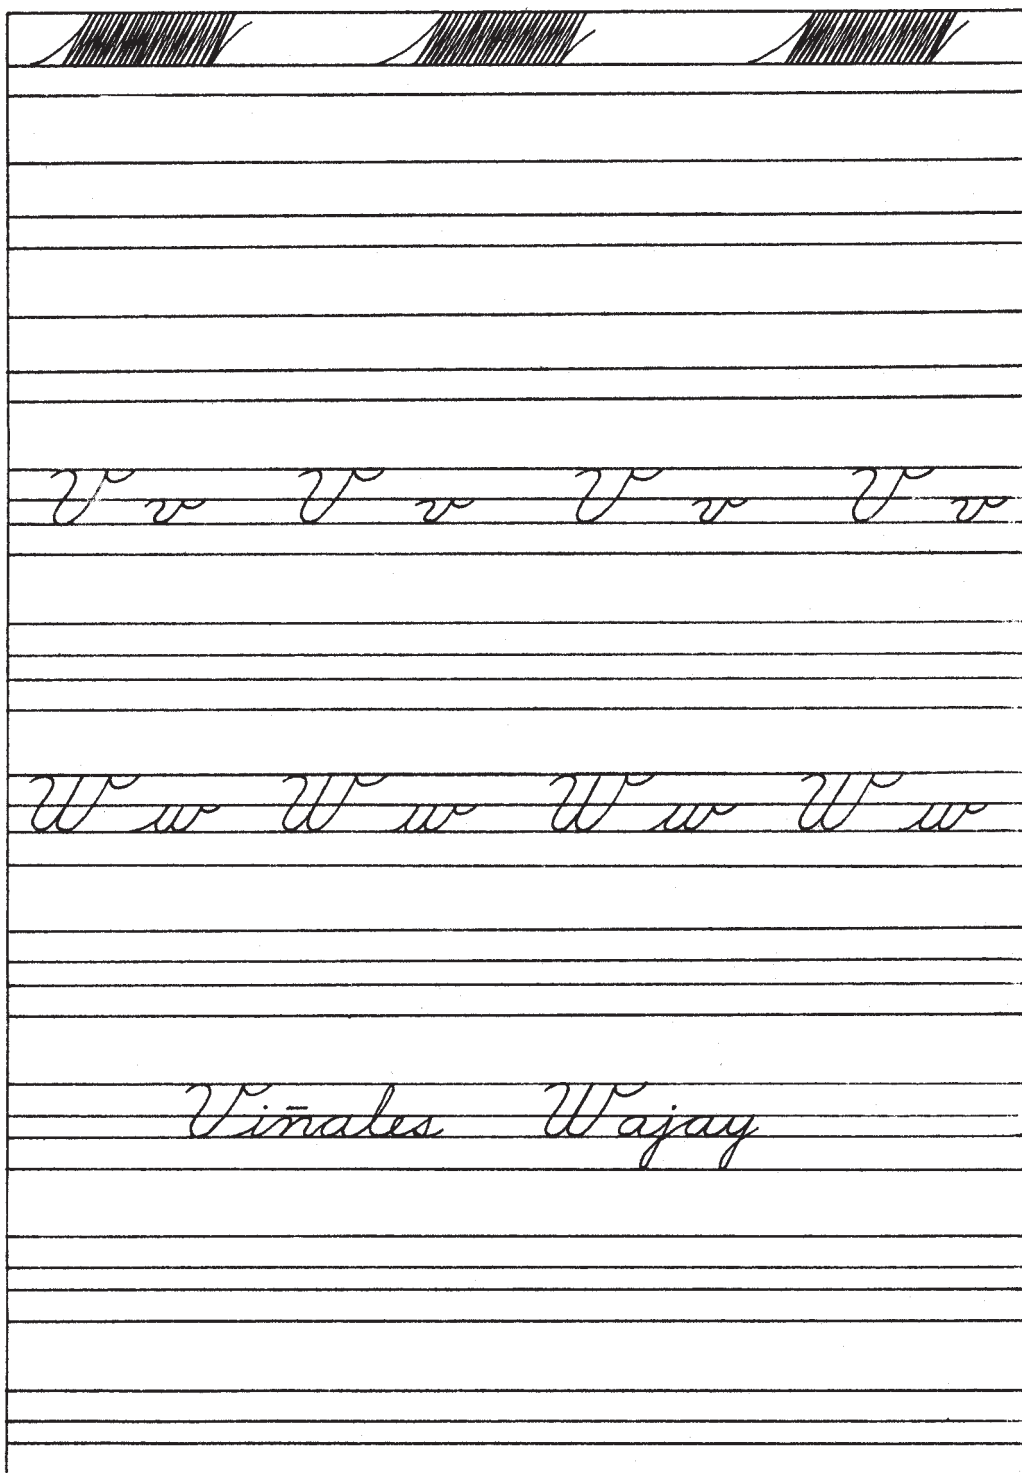 V v V v V v V v
W w W w W w W w
Viñales Wajay